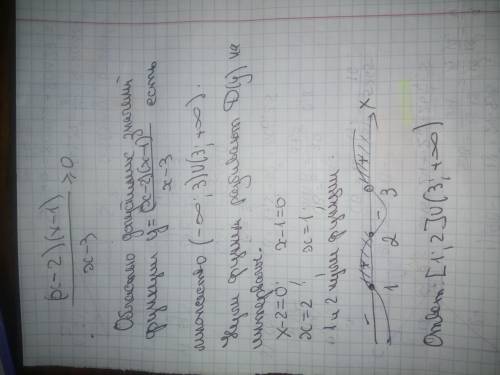 (x-2)(x-1) / x-3 ≥ 0
Областью допустимых значений
функции y = (x-2)(x-1) / x-3 есть
множество (-∞; 3)U(3; +∞).
Нули функции разбивают D(y) на
интервалы.
x-2=0; x-1=0
x=2; x=1
1 и 2 нули функции.
- + - + x
1 2 3
Ответ: [1; 2]U(3; +∞)